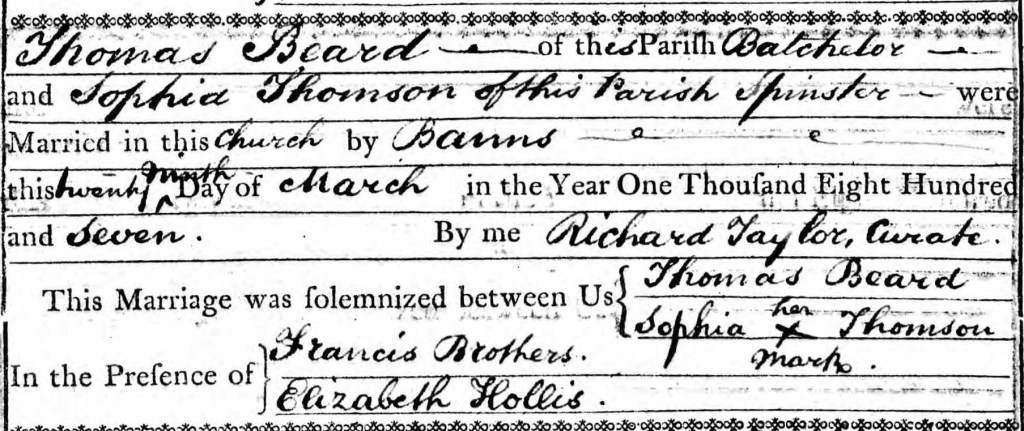 Thomas Beard of this Pariſh Batchelor
and Sophia Thomson of this Parish Spinster were
Married in this Church by Banns
this twenty ninth Day of March in the Year One Thouſand Eight Hundred
and Seven. By me Richard Taylor, Curate.
This Marriage was ſolemnized between Us { Thomas Beard
Sophia her X mark. Thomson
In the Preſence of } Francis Brothers.
Elizabeth Hollis.